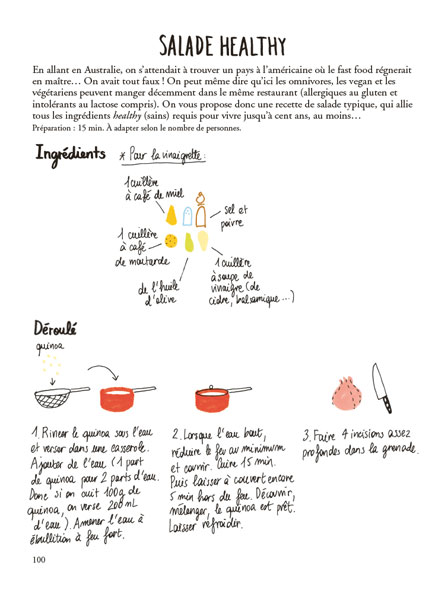 SALADE HEALTHY
En allant en Australie, on s'attendait à trouver un pays à l'américaine où le fast food régnerait
en maître… On avait tout faux ! On peut même dire qu'ici les omnivores, les vegan et les
végétariens peuvent manger décemment dans le même restaurant (allergiques au gluten et
intolérants au lactose compris). On vous propose donc une recette de salade typique, qui allie
tous les ingrédients healthy (sains) requis pour vivre jusqu'à cent ans, au moins…
Préparation : 15 min. À adapter selon le nombre de personnes.
Ingrédients
* Pour la vinaigrette :
1 cuillère
à café de miel
sel et
poivre
1 cuillère
à café
de moutarde
de l'huile
d'olive
1 cuillère
à soupe de
vinaigre (de
cidre, balsamique...)
Déroulé
quinoa
1. Rincer le quinoa sous l'eau
et verser dans une casserole.
Ajouter de l'eau (1 part
de quinoa pour 2 parts d'eau.
Donc si on cuit 100g de
quinoa, on verse 200mL
d'eau). Amener l'eau à
ébullition à feu fort.
2. Lorsque l'eau bout,
réduire le feu au minimum
et couvrir. Cuire 15 min.
Puis laisser à couvert encore
5 min hors du feu. Découvrir,
mélanger, le quinoa est prêt.
Laisser refroidir.
3. Faire 4 incisions assez
profondes dans la grenade.
100